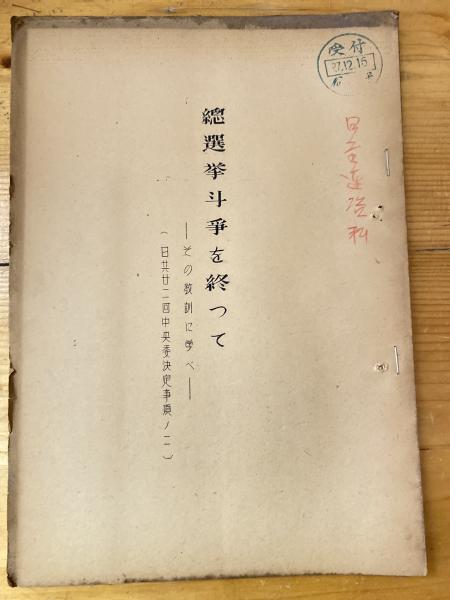 受付
27.12.15
日全連資料
總選挙斗爭を終つて
―その教訓に学べ―
(日共廿二回中央委決定事項ノ二)